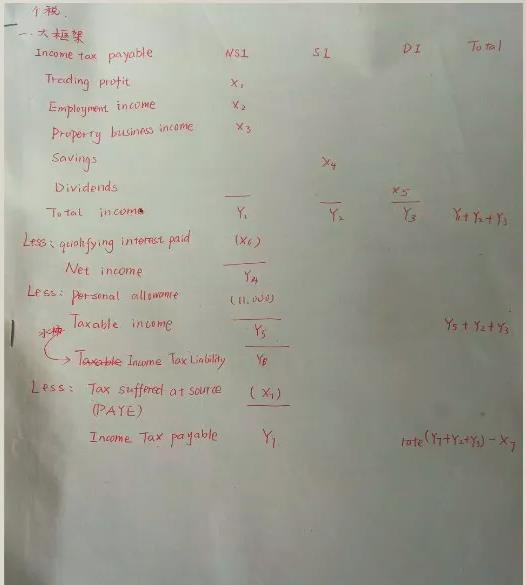 个税.
一. 大框架
Income tax payable NSI SI DI Total
Trading profit X₁
Employment income X₂
Property business income X₃
Savings X₄
Dividends X₅
Total income Y₁ Y₂ Y₃ Y₁+Y₂+Y₃
Less: qualifying interest paid (X₆)
Net income Y₄
Less: personal allowance (11,000)
Taxable income Y₅ Y₅+Y₂+Y₃
Income Tax Liability Y₆
Less: Tax suffered at source (X₇)
(PAYE)
Income Tax payable Y₇ rate(Y₇+Y₂+Y₃)-X₇